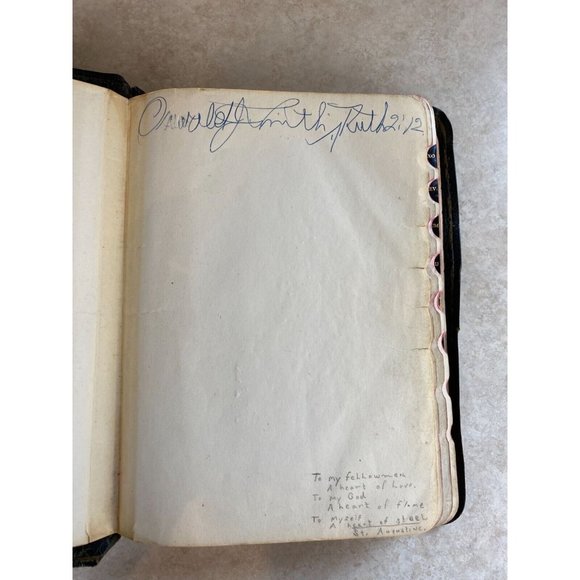 Oswald J Smith, Ruth 2:12
To my fellowmen
A heart of love.
To my God
A heart of flame
To myself
A heart of steel
St. Augustine